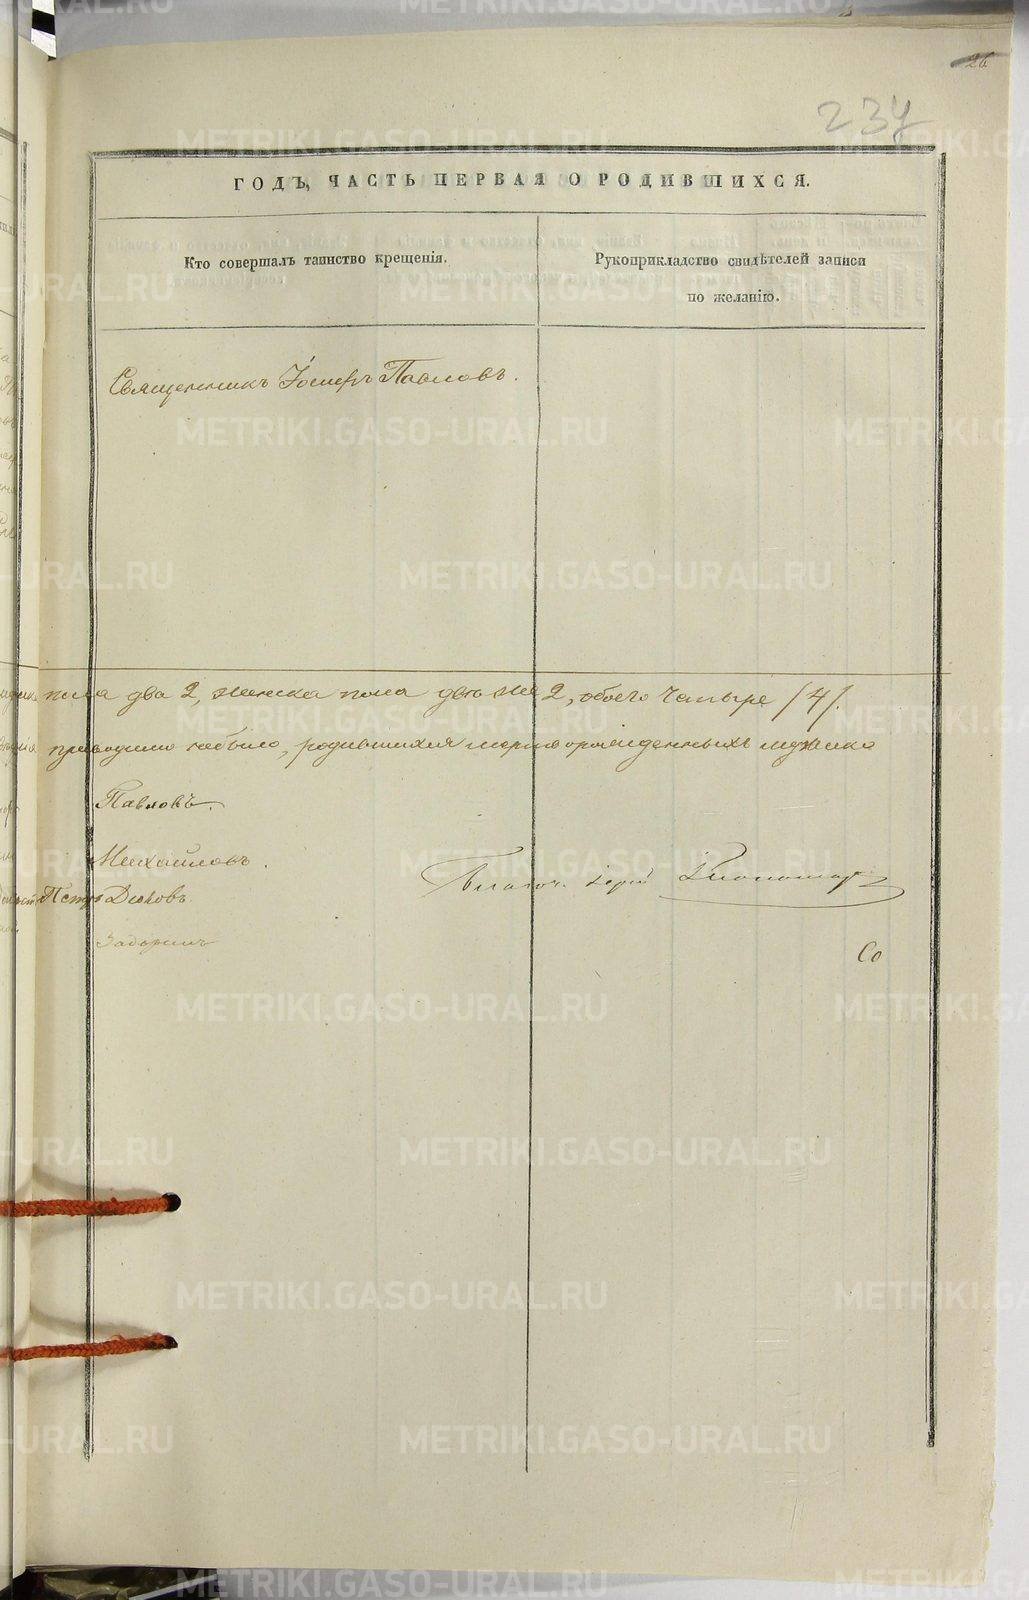 26
237
ГОДЪ, ЧАСТЬ ПЕРВАЯ О РОДИВШИХСЯ.
Кто совершалъ таинство крещенія.
Рукоприкладство свидѣтелей записи
по желанію.
Священникъ Іосифъ Павловъ.
пола два 2, женска пола двѣ 2, обоего четыре /4/.
небыло, родившихся мертворожденныхъ мужска
Павловъ.
Михайловъ.
Петръ Дюковъ.
Благоч. Іерей
Задоринъ
Со
METRIKI.GASO-URAL.RU